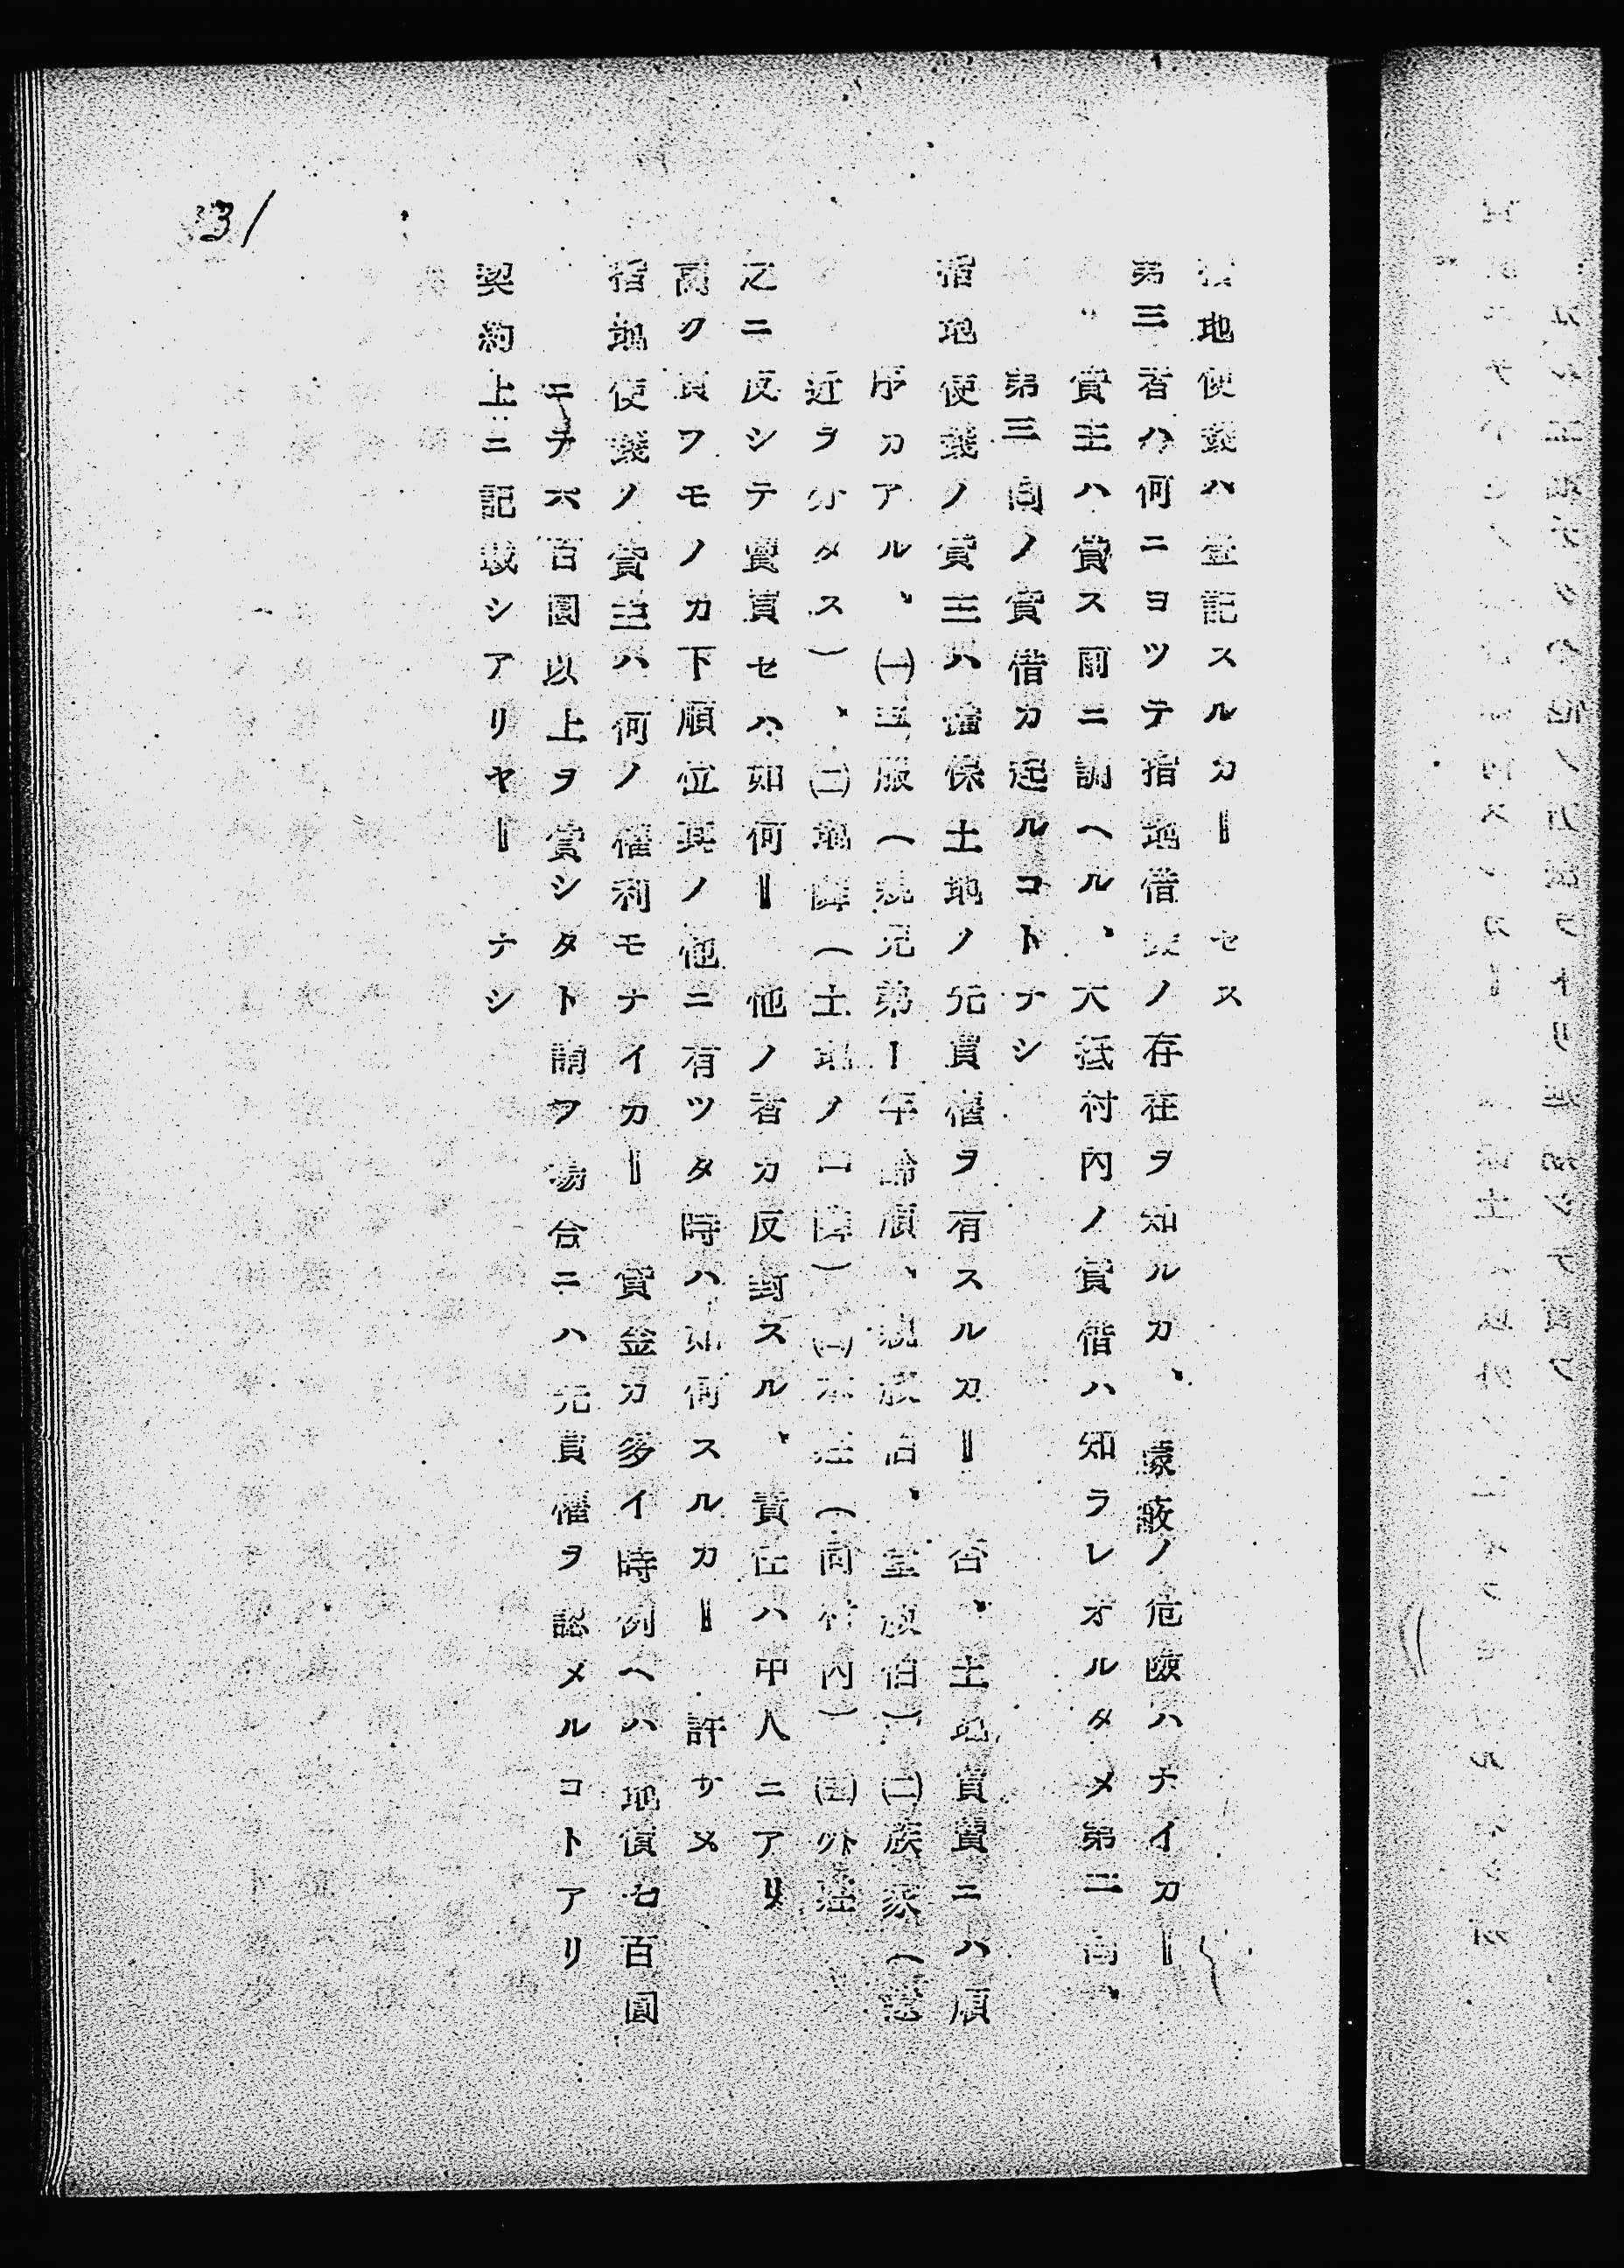 31
指地使錢ハ登記スルカ‖ セス
第三者ハ何ニヨツテ指地借錢ノ存在ヲ知ルカ、隱蔽ノ危險ハナイカ‖
貸主ハ貸ス前ニ調ヘル、大抵村內ノ貸借ハ知ラレオルタメ第二、
第三ノ貸借カ起ルコトナシ
指地使錢ノ貸主ハ擔保土地ノ先買權ヲ有スルカ‖ 否、土地賣買ニハ順
序カアル、㈠五服(親兄弟ー年齡順、親叔伯、堂叔伯)㈡族家(
近ヲ分タス)、㈢地鄰(土地ノ四鄰)㈣本莊(同村內)㈤外莊
之ニ反シテ賣買セハ如何‖ 他ノ者カ反對スル、責任ハ中人ニアリ
高ク買フモノカ下順位其ノ他ニ有ツタ時ハ如何スルカ‖ 許サヌ
指地使錢ノ貸主ハ何ノ權利モナイカ‖ 貸金カ多イ時例ヘハ地價七百圓
ニテ六百圓以上ヲ貸シタト謂フ場合ニハ先買權ヲ認メルコトアリ
契約上ニ記載シアリヤ‖ ナシ